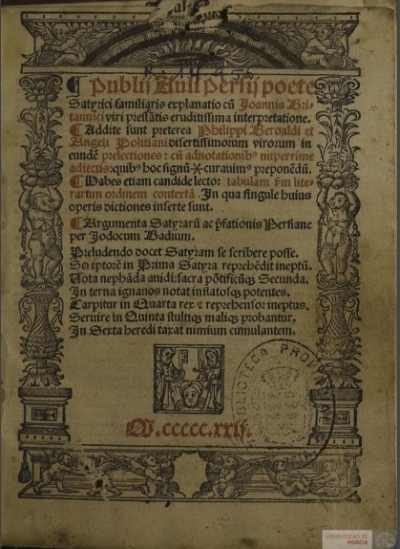 R-14.956
¶ Publij Auli Persij poete
Satyrici familiaris explanatio cũ Joannis Bri-
tannici viri prestãtis eruditissima interpretatione.
¶ Addite sunt preterea Philippi Beroaldi et
Angeli Politiani disertissimorum virorum in
eundẽ prelectiones: cũ adnotationibꝰ nuperrime
adiectis: quibꝰ hoc signũ -X- curauimꝰ preponẽdũ.
¶ Habes etiam candide lector tabulam ẜm lite-
rarum ordinem contextã. In qua singule huius
operis dictiones inserte sunt.
¶ Argumenta Satyrarũ ac p̃fationis Persiane
per Jodocum Badium.
Preludendo docet Satyram se scribere posse.
So iptorẽ in Prima Satyra reprehẽdit ineptũ.
Uota nephãda auidi: sacra põtificũqꝫ Secunda.
In terna ignauos notat inflatosqꝫ potentes.
Carpitur in Quarta rex ⁊ reprehensor ineptus.
Seruire in Quinta stultiqꝫ maliqꝫ probantur.
In Sexta heredi taxat nimium cumulantem.
M.CCCCC.XXII.
BIBLIOTECA PROV
UNIVERSIDAD DE
MURCIA